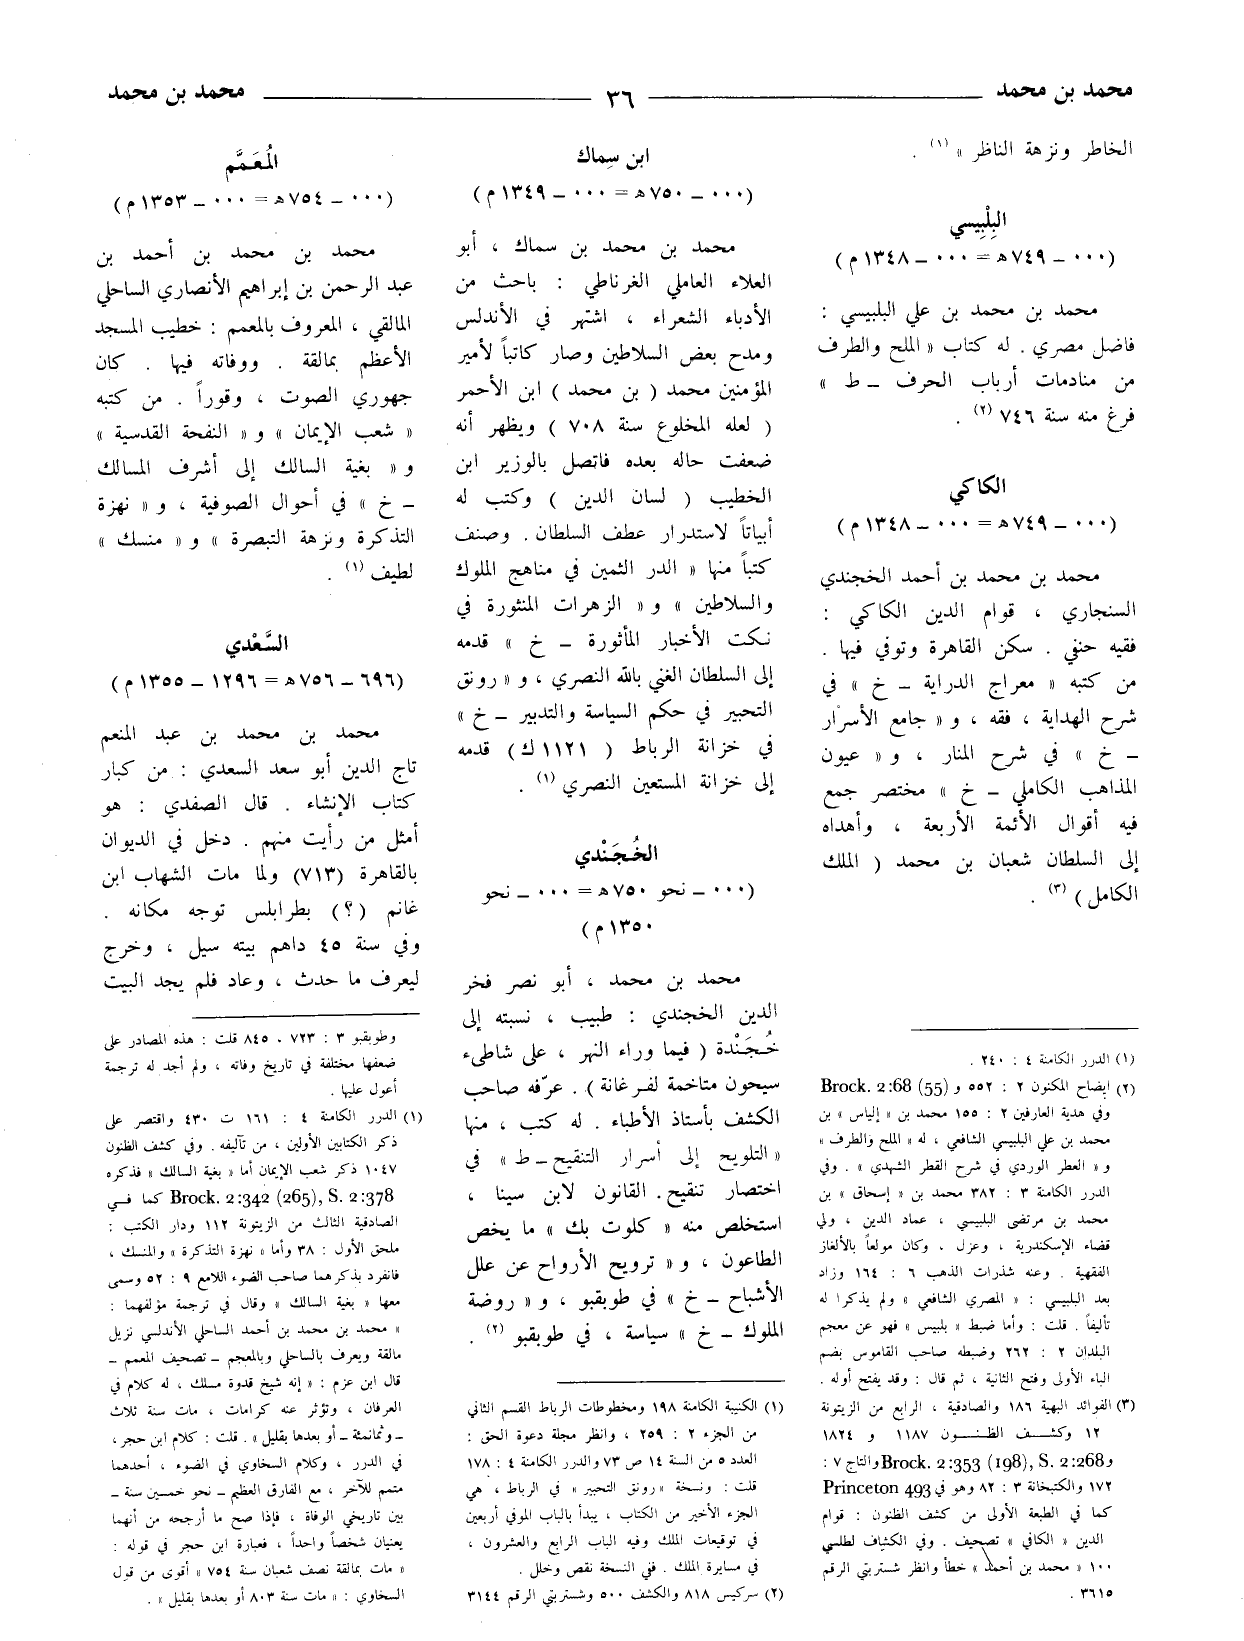 محمد بن محمد ٣٦ محمد بن محمد
الخاطر ونزهة الناظر » (١) .
البِلْبِيسي
(٠٠٠ ــ ٧٤٩ هـ = ٠٠٠ ــ ١٣٤٨ م)
محمد بن محمد بن علي البلبيسي :
فاضل مصري . له كتاب « الملح والطرف
من منادمات أرباب الحرف ــ ط »
فرغ منه سنة ٧٤٦ (٢) .
الكاكي
(٠٠٠ ــ ٧٤٩ هـ = ٠٠٠ ــ ١٣٤٨ م)
محمد بن محمد بن أحمد الخجندي
السنجاري ، قوام الدين الكاكي :
فقيه حنفي . سكن القاهرة وتوفي فيها .
من كتبه « معراج الدراية ــ خ » في
شرح الهداية ، فقه ، و« جامع الأسرار
ــ خ » في شرح المنار ، و« عيون
المذاهب الكاملي ــ خ » مختصر جمع
فيه أقوال الأئمة الأربعة ، وأهداه
إلى السلطان شعبان بن محمد ( الملك
الكامل ) (٣) .
(١) الدرر الكامنة ٤ : ٢٤٠ .
(٢) إيضاح المكنون ٢ : ٥٥٢ و Brock. 2:68 (55)
وفي هدية العارفين ٢ : ١٥٥ محمد بن « إلياس » بن
محمد بن علي البلبيسي الشافعي ، له « الملح والطرف »
و « العطر الوردي في شرح القطر الشهدي » . وفي
الدرر الكامنة ٣ : ٣٨٢ محمد بن « إسحاق » بن
محمد بن مرتضى البلبيسي ، عماد الدين ، ولي
قضاء الإسكندرية ، وعزل ، وكان مولعاً بالألغاز
الفقهية . وعنه شذرات الذهب ٦ : ١٦٤ وزاد
بعد البلبيسي : « المصري الشافعي » ولم يذكرا له
تأليفاً . قلت : وأما ضبط « بلبيس » فهو عن معجم
البلدان ٢ : ٢٦٢ وضبطه صاحب القاموس بضم
الباء الأولى وفتح الثانية ، ثم قال : وقد يفتح أوله .
(٣) الفوائد البهية ١٨٦ والصادقية ، الرابع من الزيتونة
١٢ وكشف الظنون ١١٨٧ و ١٨٢٤
و Brock. 2:353 (198), S. 2:268 والتاج ٧ :
١٧٢ والكتبخانة ٣ : ٨٢ وهو في Princeton 493
كما في الطبعة الأولى من كشف الظنون : قوام
الدين « الكافي » تصحيف . وفي الكشاف لطلسي
١٠٠ « محمد بن أحمد » خطأ وانظر شستربتي الرقم
٣٦١٥ .
ابن سِماك
(٠٠٠ ــ ٧٥٠ هـ = ٠٠٠ ــ ١٣٤٩ م)
محمد بن محمد بن سماك ، أبو
العلاء العاملي الغرناطي : باحث من
الأدباء الشعراء ، اشتهر في الأندلس
ومدح بعض السلاطين وصار كاتباً لأمير
المؤمنين محمد ( بن محمد ) ابن الأحمر
( لعله المخلوع سنة ٧٠٨ ) ويظهر أنه
ضعفت حاله بعده فاتصل بالوزير ابن
الخطيب ( لسان الدين ) وكتب له
أبياتاً لاستدرار عطف السلطان . وصنف
كتباً منها « الدر الثمين في مناهج الملوك
والسلاطين » و« الزهرات المنثورة في
نكت الأخبار المأثورة ــ خ » قدمه
إلى السلطان الغني بالله النصري ، و« رونق
التحبير في حكم السياسة والتدبير ــ خ »
في خزانة الرباط ( ١١٢١ ك ) قدمه
إلى خزانة المستعين النصري (١) .
الخُجَنْدي
(٠٠٠ ــ نحو ٧٥٠ هـ = ٠٠٠ ــ نحو
١٣٥٠ م)
محمد بن محمد ، أبو نصر فخر
الدين الخجندي : طبيب ، نسبته إلى
خُجَنْدة ( فيما وراء النهر ، على شاطىء
سيحون متاخمة لفرغانة ) . عرّفه صاحب
الكشف بأستاذ الأطباء . له كتب ، منها
« التلويح إلى أسرار التنقيح ــ ط » في
اختصار تنقيح . القانون لابن سينا ،
استخلص منه « كلوت بك » ما يخص
الطاعون ، و« ترويح الأرواح عن علل
الأشباح ــ خ » في طوبقبو ، و« روضة
الملوك ــ خ » سياسة ، في طوبقبو (٢) .
(١) الكتيبة الكامنة ١٩٨ ومخطوطات الرباط القسم الثاني
من الجزء ٢ : ٢٥٩ ، وانظر مجلة دعوة الحق :
العدد ٥ من السنة ١٤ ص ٧٣ والدرر الكامنة ٤ : ١٧٨
قلت : ونسخة « رونق التحبير » في الرباط ، هي
الجزء الأخير من الكتاب ، يبدأ بالباب الموفي أربعين
في توقيعات الملك وفيه الباب الرابع والعشرون ،
في مسايرة الملك . ففي النسخة نقص وخلل .
(٢) سركيس ٨١٨ والكشف ٥٠٠ وشستربتي الرقم ٣١٤٤
المُعَمَّم
(٠٠٠ ــ ٧٥٤ هـ = ٠٠٠ ــ ١٣٥٣ م)
محمد بن محمد بن أحمد بن
عبد الرحمن بن إبراهيم الأنصاري الساحلي
المالقي ، المعروف بالمعمم : خطيب المسجد
الأعظم بمالقة . ووفاته فيها . كان
جهوري الصوت ، وقوراً . من كتبه
« شعب الإيمان » و« النفحة القدسية »
و« بغية السالك إلى أشرف المسالك
ــ خ » في أحوال الصوفية ، و« نهزة
التذكرة ونزهة التبصرة » و« منسك »
لطيف (١) .
السَّعْدي
(٦٩٦ ــ ٧٥٦ هـ = ١٢٩٦ ــ ١٣٥٥ م)
محمد بن محمد بن عبد المنعم
تاج الدين أبو سعد السعدي : من كبار
كتاب الإنشاء . قال الصفدي : هو
أمثل من رأيت منهم . دخل في الديوان
بالقاهرة (٧١٣) ولما مات الشهاب ابن
غانم (؟) بطرابلس توجه مكانه .
وفي سنة ٤٥ داهم بيته سيل ، وخرج
ليعرف ما حدث ، وعاد فلم يجد البيت
وطوبقبو ٣ : ٧٢٣ ، ٨٤٥ قلت : هذه المصادر على
ضعفها مختلفة في تاريخ وفاته ، ولم أجد له ترجمة
أعول عليها .
(١) الدرر الكامنة ٤ : ١٦١ ت ٤٣٠ واقتصر على
ذكر الكتابين الأولين ، من تآليفه . وفي كشف الظنون
١٠٤٧ ذكر شعب الإيمان أما « بغية السالك » فذكره
Brock. 2:342 (265), S. 2:378 كما في
الصادقية الثالث من الزيتونة ١١٢ ودار الكتب :
ملحق الأول : ٣٨ وأما « نهزة التذكرة » والمنسك ،
فانفرد بذكرهما صاحب الضوء اللامع ٩ : ٥٢ وسمى
معها « بغية السالك » وقال في ترجمة مؤلفهما :
« محمد بن محمد بن أحمد الساحلي الأندلسي نزيل
مالقة ويعرف بالساحلي وبالمعجم ــ تصحيف المعمم ــ
قال ابن عزم : « إنه شيخ قدوة مسلك ، له كلام في
العرفان ، وتؤثر عنه كرامات ، مات سنة ثلاث
ــ وثمانمئة ــ أو بعدها بقليل » . قلت : كلام ابن حجر ،
في الدرر ، وكلام السخاوي في الضوء ، أحدهما
متمم للآخر ، مع الفارق العظيم ــ نحو خمسين سنة ــ
بين تاريخي الوفاة ، فإذا صح ما أرجحه من أنهما
يعنيان شخصاً واحداً ، فعبارة ابن حجر في قوله :
« مات بمالقة نصف شعبان سنة ٧٥٤ » أقوى من قول
السخاوي : « مات سنة ٨٠٣ أو بعدها بقليل » .